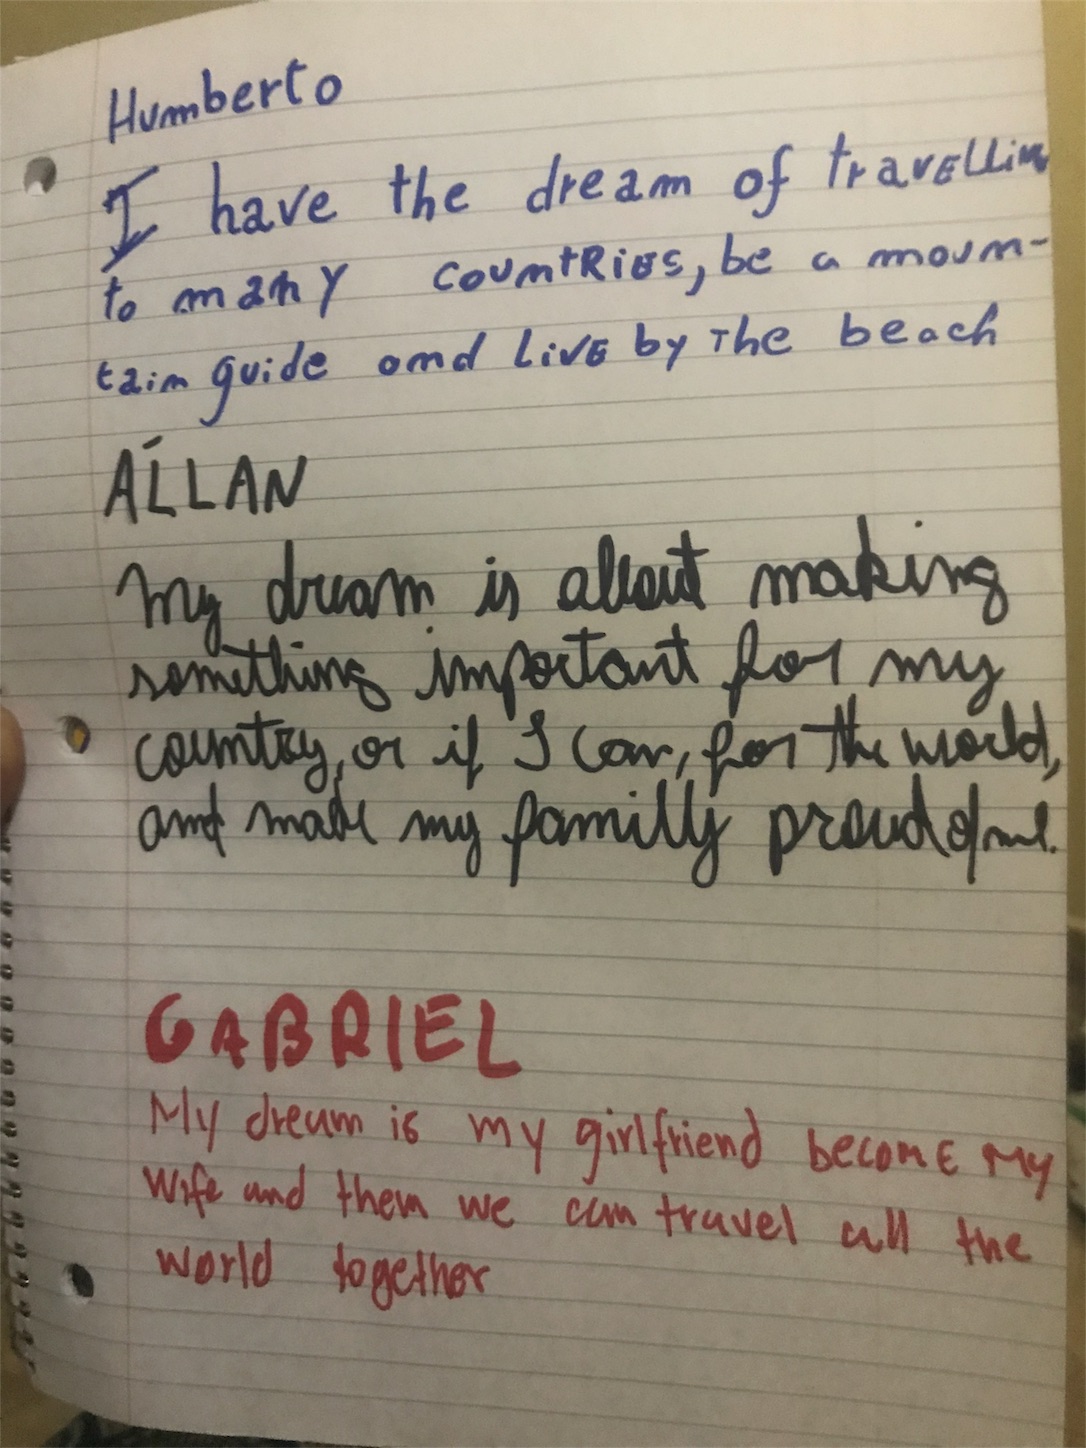 Humberto
I have the dream of travelling
to many countries, be a moun-
tain guide and live by the beach
ÁLLAN
My dream is about making
something important for my
country, or if I can, for the world,
and made my familly proud of me.
GABRIEL
My dream is my girlfriend become my
wife and them we can travel all the
world together